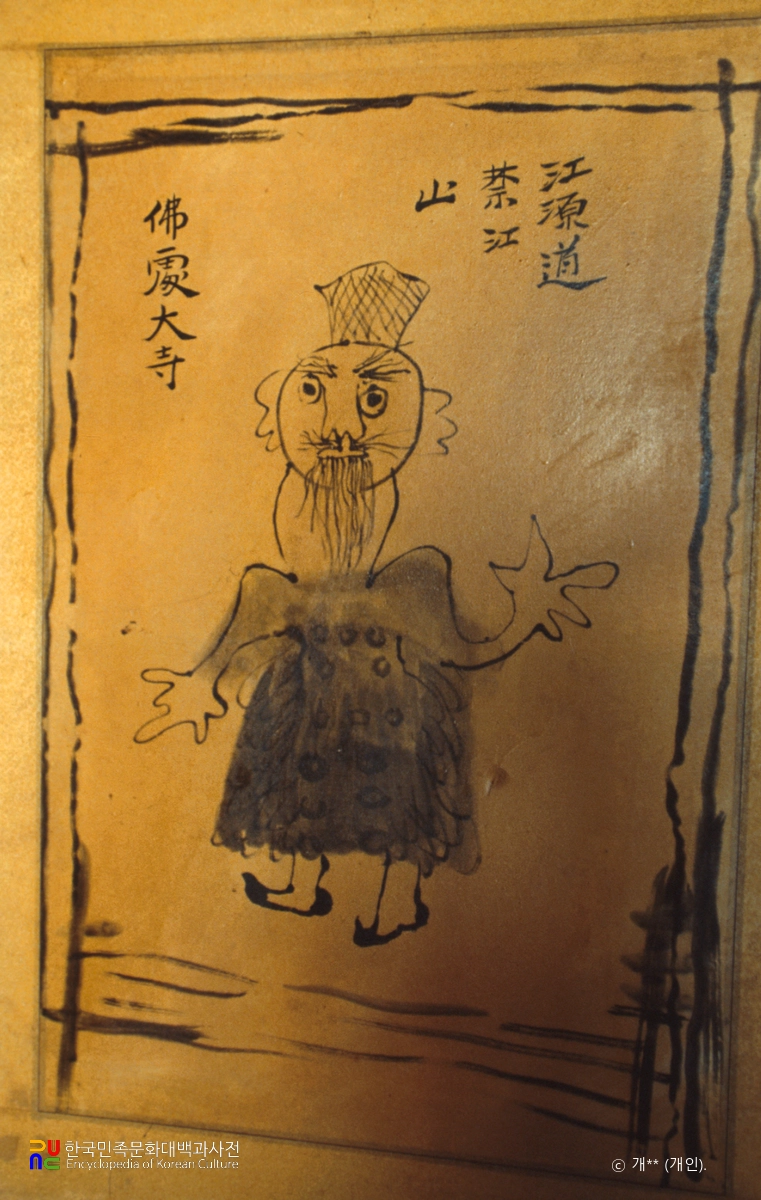 江源道
禁江
山
佛處大寺
한국민족문화대백과사전
Encyclopedia of Korean Culture
ⓒ 개** (개인).